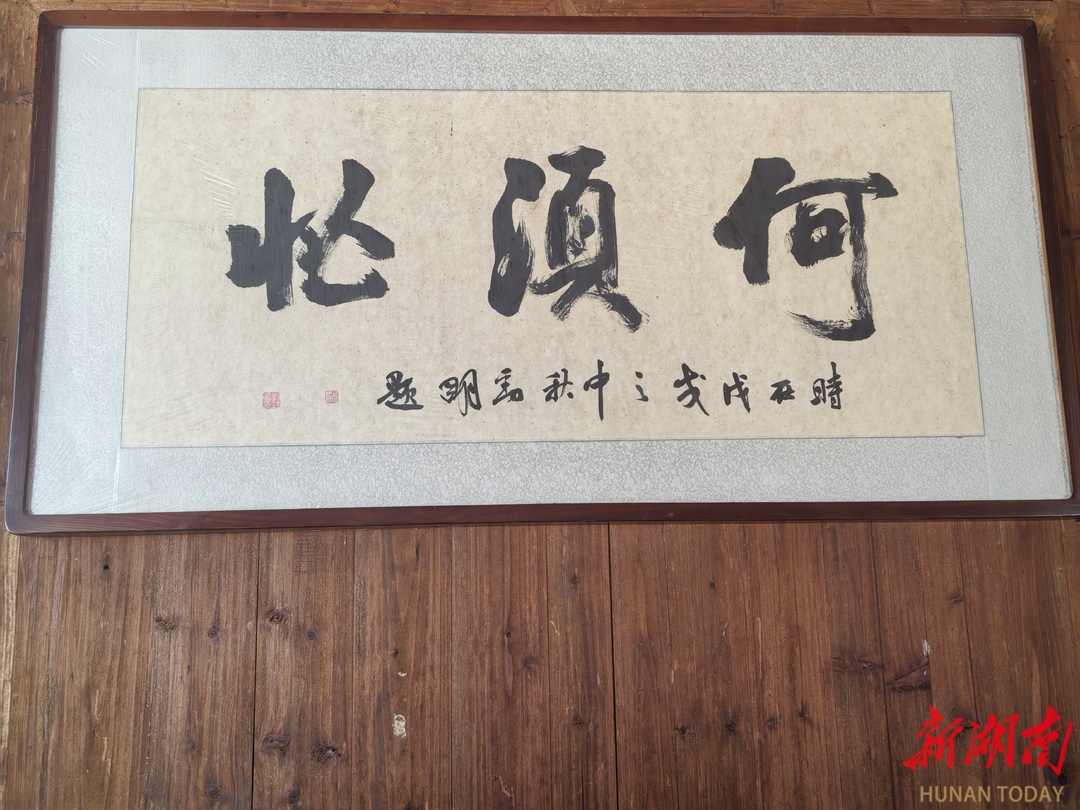 何須忙
時在戊戌之中秋 明題
新湖南
HUNAN TODAY